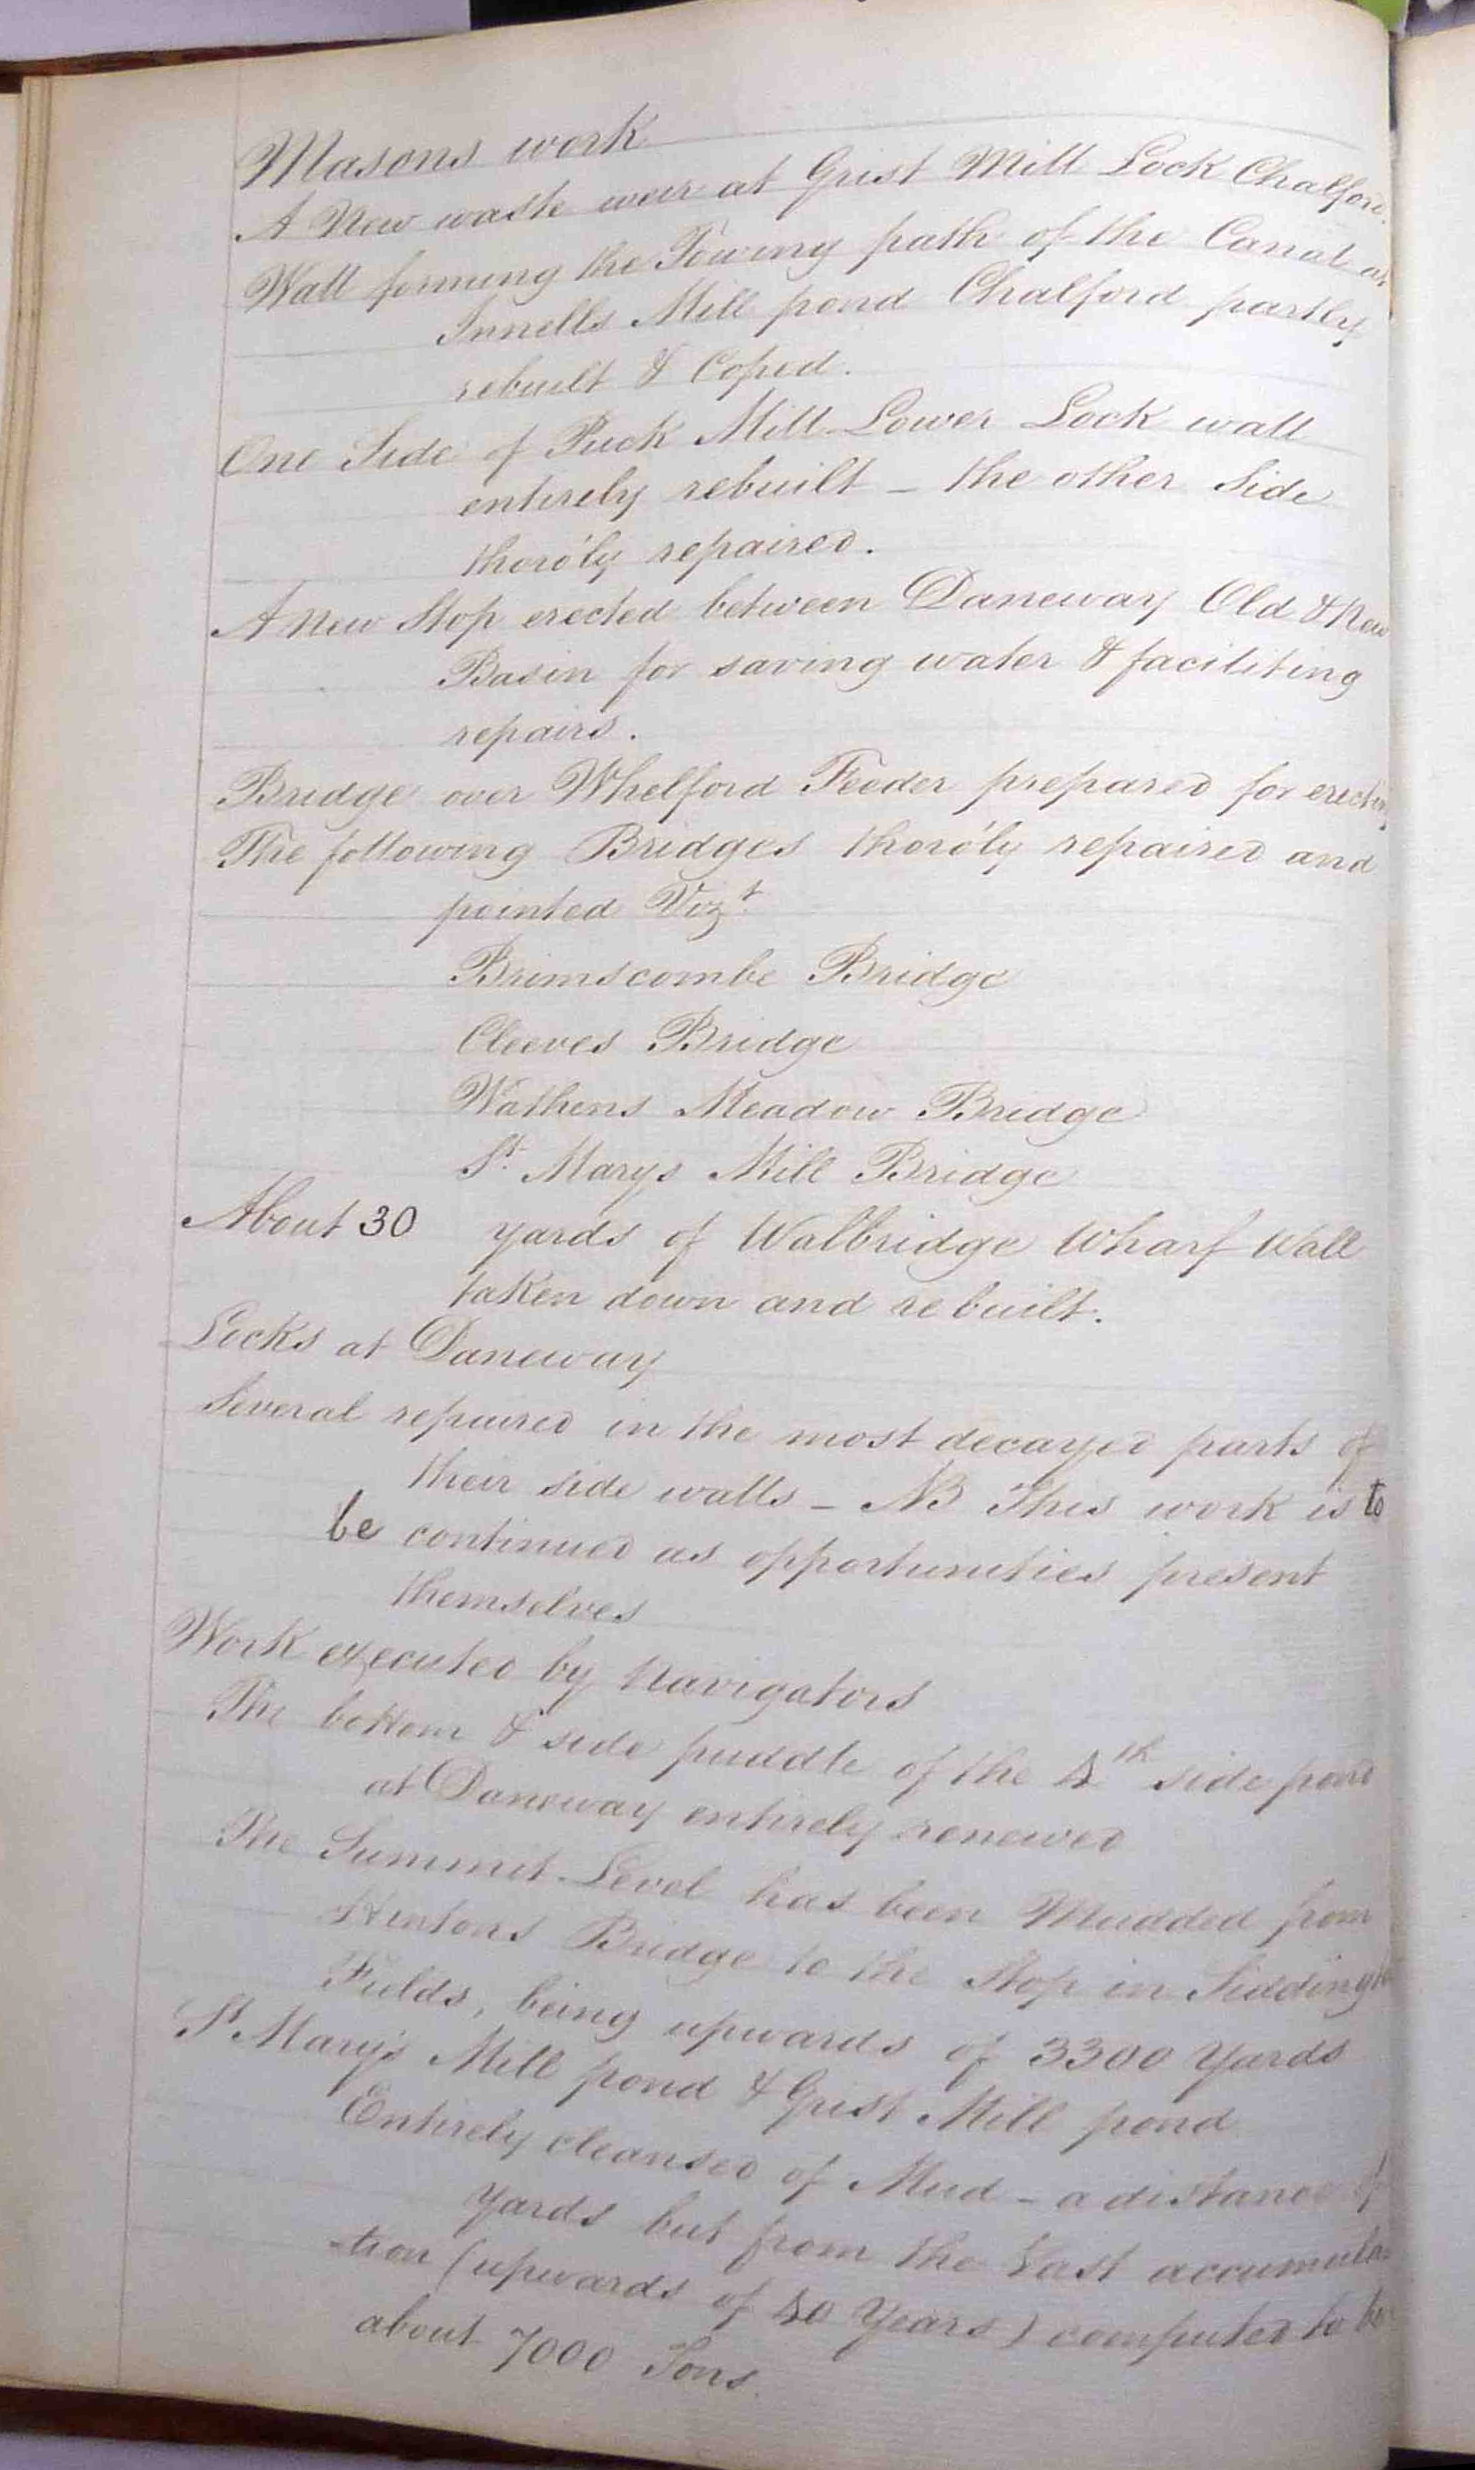 Masons work
A New waste weir at Grist Mill Lock Chalford.
Wall forming the Towing path of the Canal at
Innells Mill pond Chalford partly
rebuilt & Coped.
One Side of Puck Mill Lower Lock wall
entirely rebuilt - the other Side
thoro'ly repaired.
A New Stop erected between Daneway Old & New
Basin for saving water & faciliting
repairs.
Bridge over Whelford Feeder prepared for erecting
The following Bridges thoro'ly repaired and
pointed Vizt.
Brimscombe Bridge
Cleeves Bridge
Wathens Meadow Bridge
St. Marys Mill Bridge
About 30 yards of Walbridge Wharf Wall
taken down and rebuilt.
Locks at Daneway
Several repaired in the most decayed parts of
their side walls - NB This work is to
be continued as opportunities present
themselves
Work executed by Navigators
The bottom & side puddle of the 4th side pond
at Daneway entirely renewed
The Summit Level has been Mudded from
Sinlons Bridge to the Stop in Siddington
Fields, being upwards of 3300 Yards
St Mary's Mill pond & Grist Mill pond
Entirely cleansed of Mud - a distance of
Yards but from the Vast accumula
-tion (upwards of 40 Years) computed to be
about 7000 Tons.